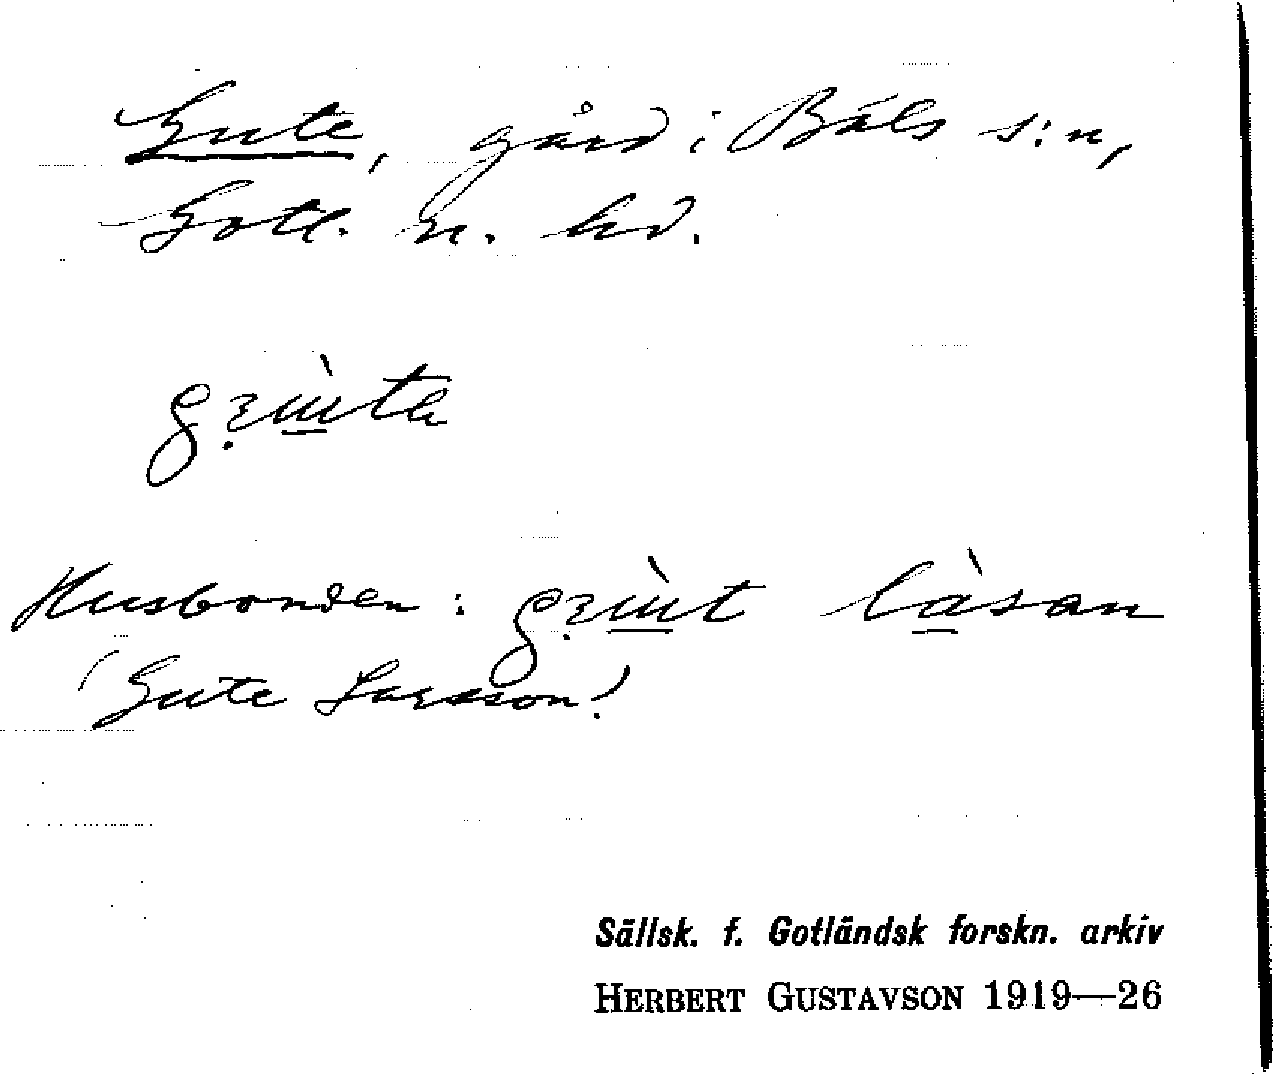 Gute, gård i Bäls s:n,
Gotl. n. hd.
Husbonden: làsan
(Gute Larsson!)
Sällsk. f. Gotländsk forskn. arkiv
HERBERT GUSTAVSON 1919—26